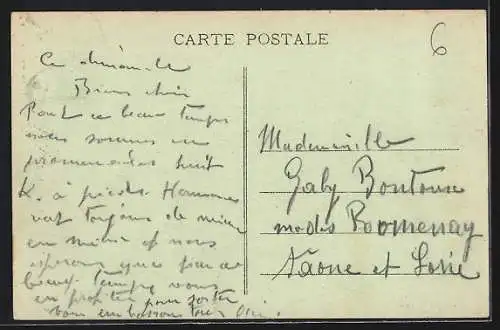 CARTE POSTALE
6
Ce dimanche
Bien chère
Pour ce beau temps
nous sommes en
promenades huit
K. à pieds. Hommes
vat toujours de mieux
en mieux et nous
espérons que par ce
beau temps vous
en profiter pour sortir
bons embassons tous
Mademoiselle
Gaby Boutouse
modes Romenay
Saone et Loire